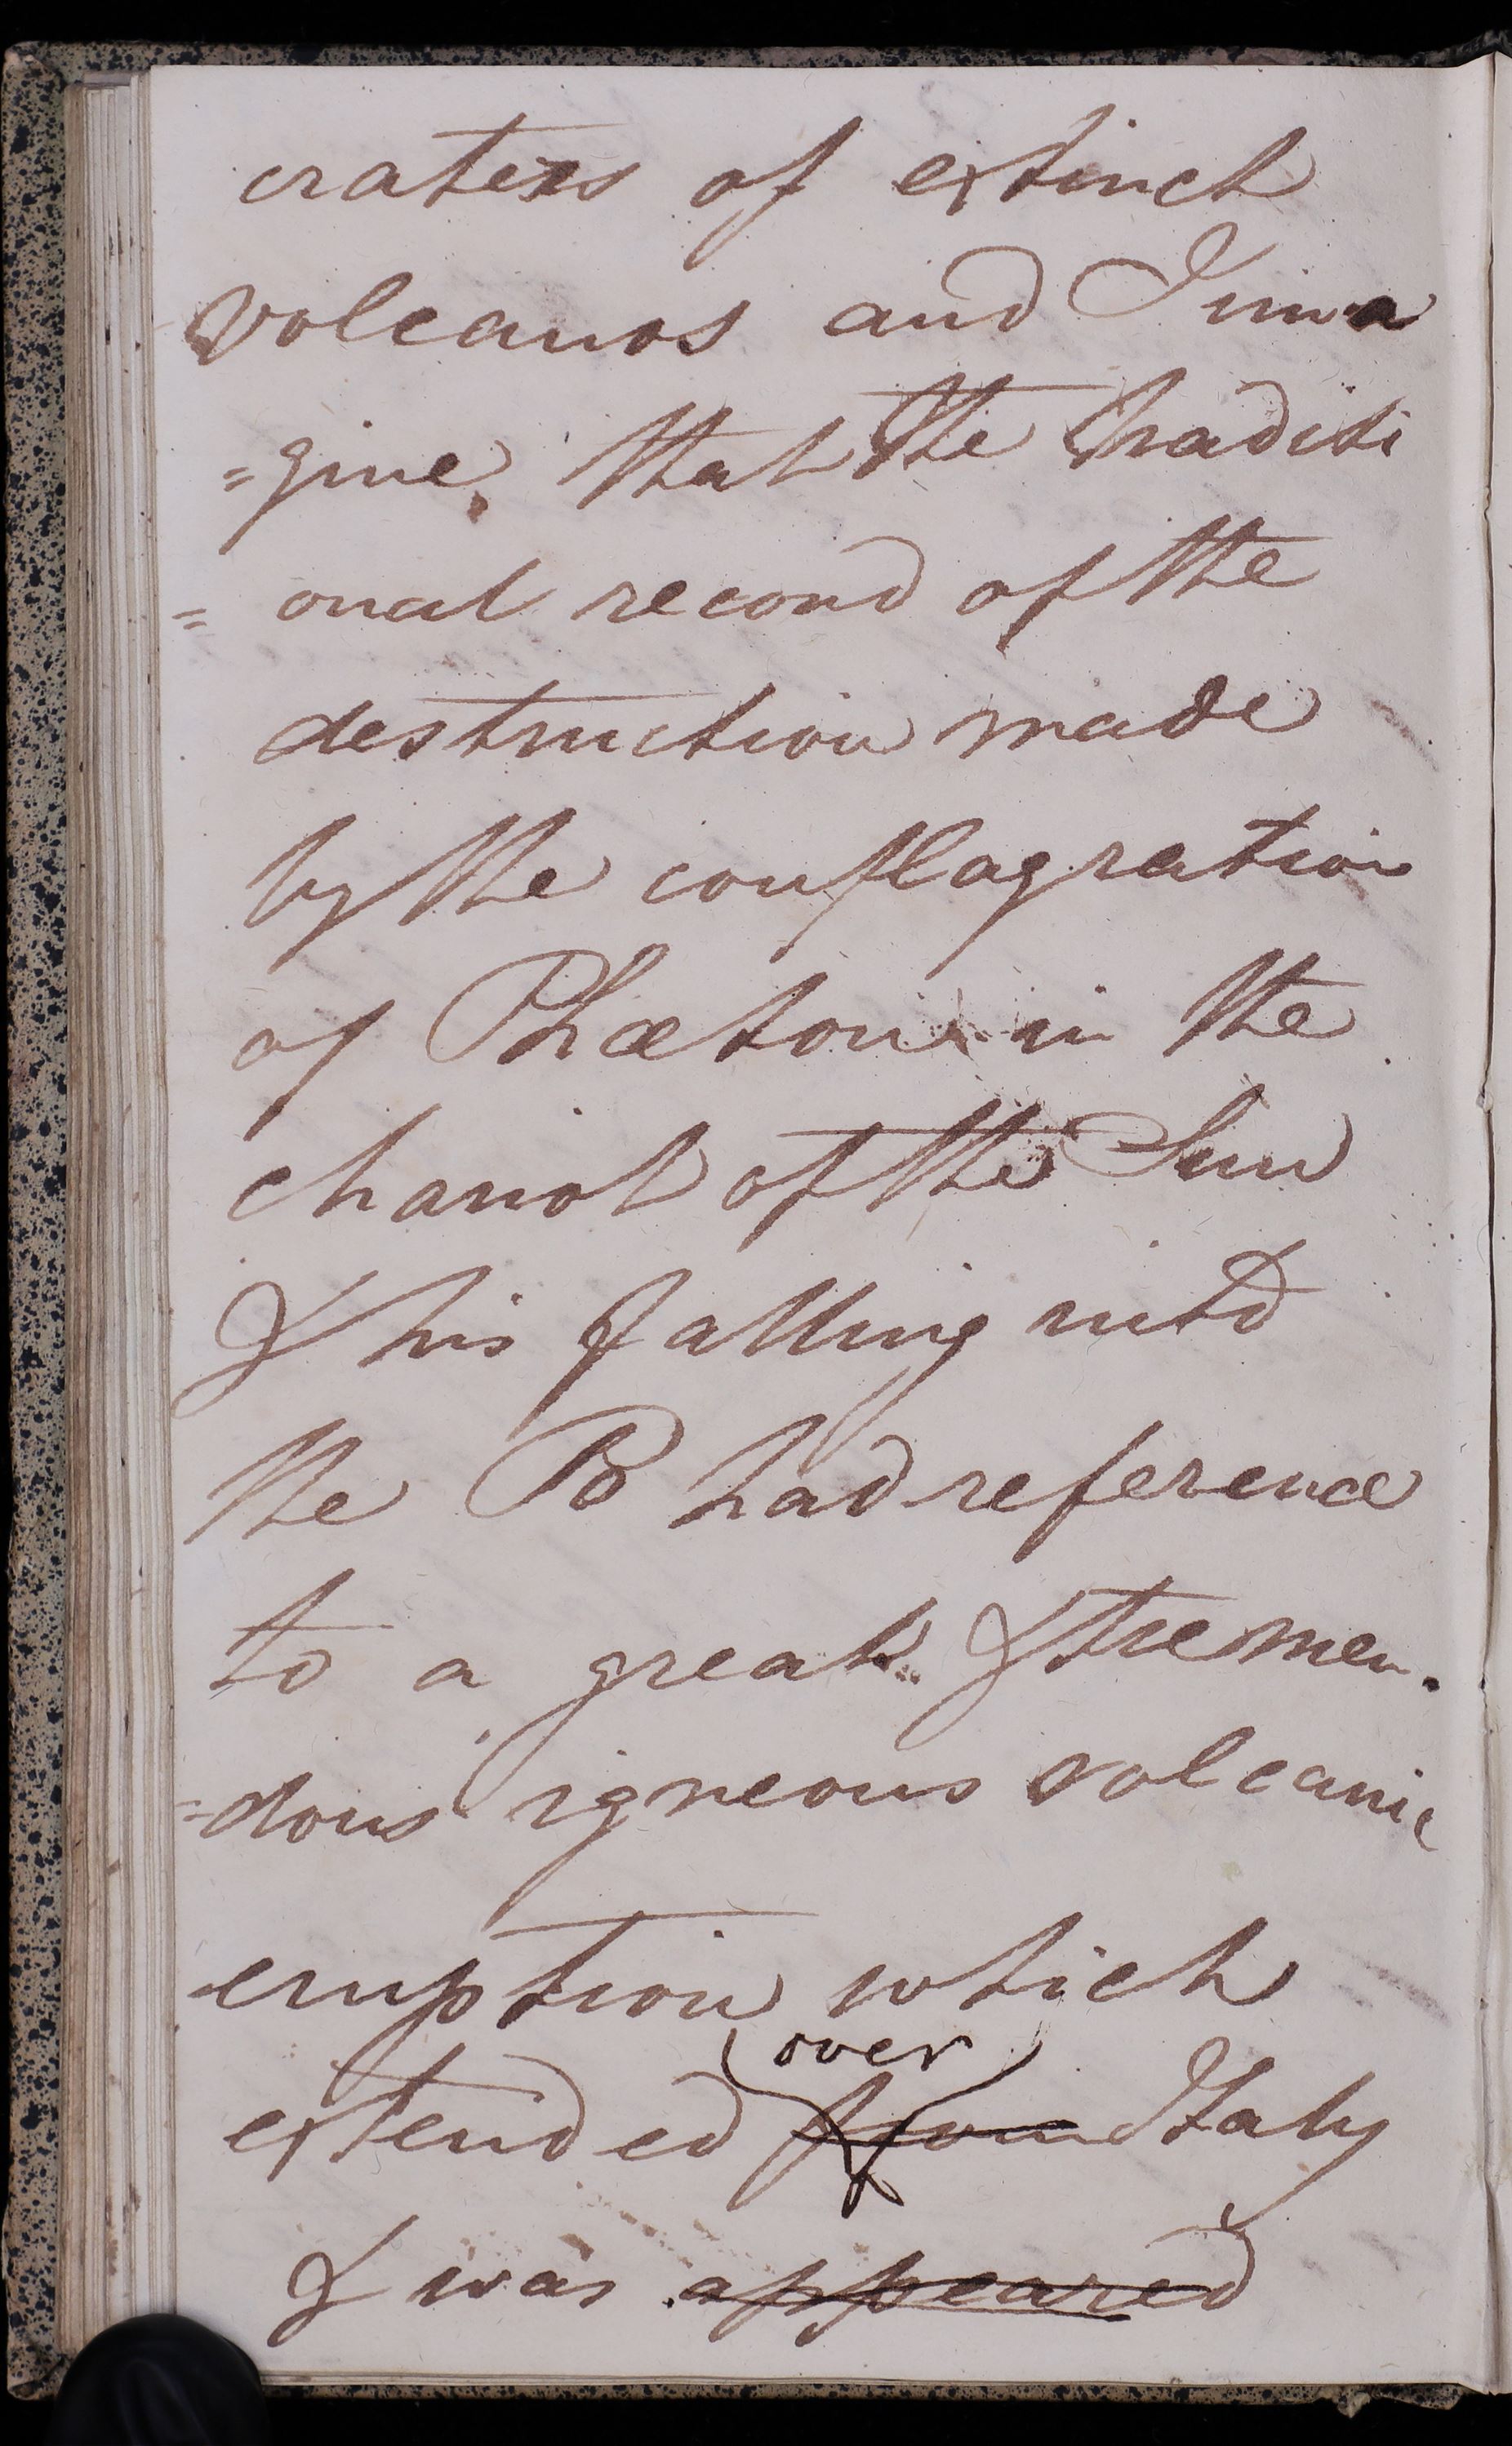 craters of extinct
volcanos and I ima
=gine, that the traditi
= onal record of the
destruction made
by the conflagration
of Phæton in the
chariot of the Sun
& his falling into
the Po had reference
to a great & tremen.
=dous igneous volcanic
eruption which
over
extended from Italy
& was appeared